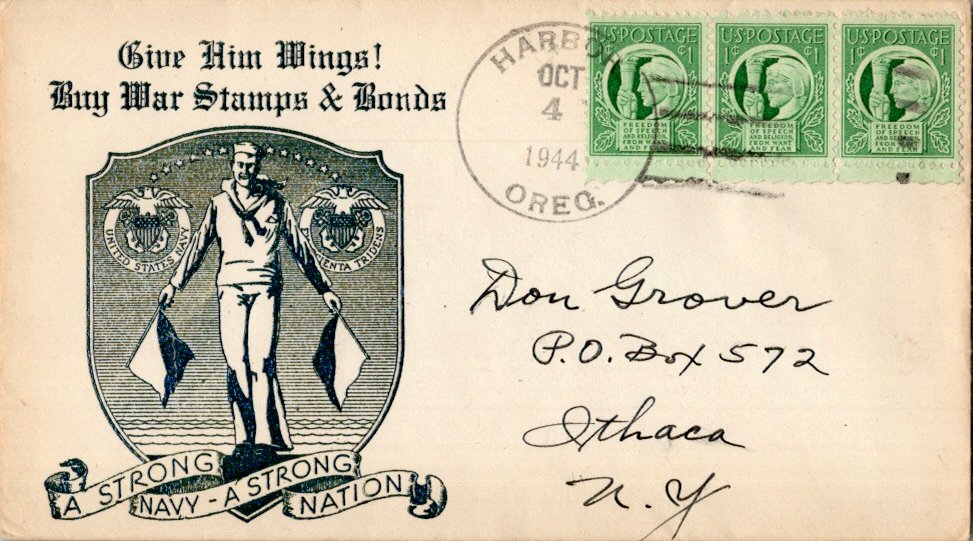 Give Him Wings!
Buy War Stamps & Bonds
HARBO
OCT
4
1944
OREG.
U.S. POSTAGE
1¢ ¢1
FREEDOM
OF SPEECH
AND RELIGION,
FROM WANT
AND FEAR
U.S. POSTAGE
1¢ ¢1
FREEDOM
OF SPEECH
AND RELIGION,
FROM WANT
AND FEAR
U.S. POSTAGE
1¢ ¢1
FREEDOM
OF SPEECH
AND RELIGION,
FROM WANT
AND FEAR
UNITED STATES NAVY
TRIDENS
A STRONG
NAVY - A STRONG
NATION
Don Grover
P.O. Box 572
Ithaca
N.Y